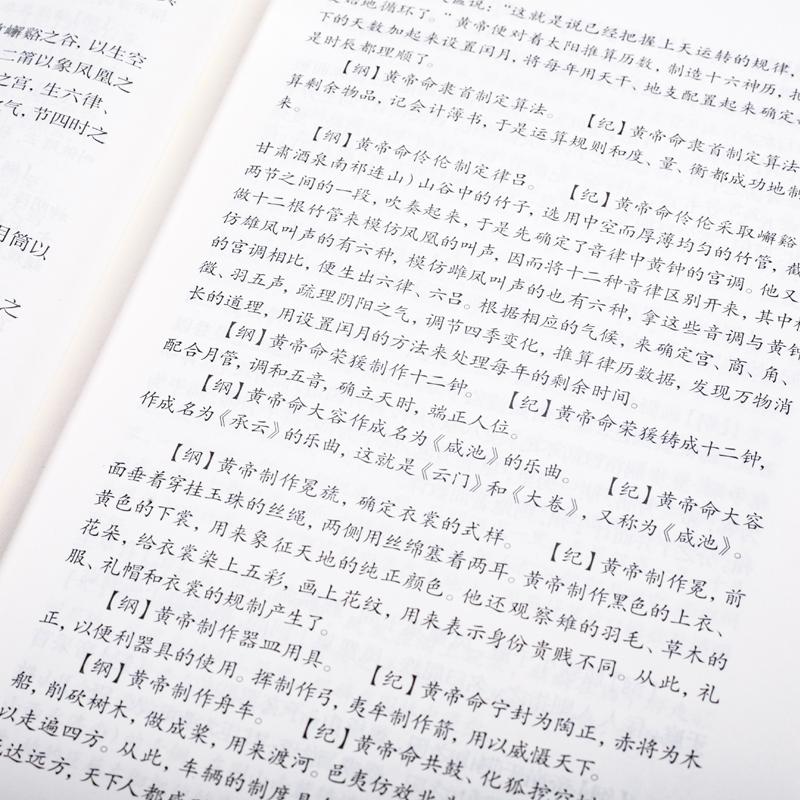 解谿之谷，以生空
二筩以象凤凰之
之宫，生六律、
气，节四时之
月筒以
之
说："这就是说已经把握上天运转的规律，
地循环了。"黄帝使对着太阳推算历数，制造十六神历，把
下的天数加起来设置闰月，将每年用天干、地支配置起来确定
是时辰都理顺了。
【纲】黄帝命隶首制定算法。　【纪】黄帝命隶首制定算法
算剩余物品，记会计薄书，于是运算规则和度、量、衡都成功地制
来。
【纲】黄帝命伶伦制定律吕。　【纪】黄帝命伶伦采取嶰谿
甘肃酒泉南祁连山）山谷中的竹子，选用中空而厚薄均匀的竹管，截
两节之间的一段，吹奏起来，于是先确定了音律中黄钟的宫调。他又
做十二根竹管来模仿凤凰的叫声，因而将十二种音律区别开来，其中模
仿雄凤叫声的有六种，模仿雌凤叫声的也有六种，拿这些音调与黄钟
的宫调相比，便生出六律、六吕。根据相应的气候，来确定宫、商、角、
徵、羽五声，疏理阴阳之气，调节四季变化，推算律历数据，发现万物消
长的道理，用设置闰月的方法来处理每年的剩余时间。
【纲】黄帝命荣猨制作十二钟。　【纪】黄帝命荣猨铸成十二钟，
配合月管，调和五音，确立天时，端正人位。
【纲】黄帝命大容作成名为《咸池》的乐曲。　【纪】黄帝命大容
作成名为《承云》的乐曲，这就是《云门》和《大卷》，又称为《咸池》。
【纲】黄帝制作冕旒，确定衣裳的式样。　【纪】黄帝制作冕，前
面垂着穿挂玉珠的丝绳，两侧用丝绵塞着两耳。黄帝制作黑色的上衣、
黄色的下裳，用来象征天地的纯正颜色。他还观察雉的羽毛、草木的
花朵，给衣裳染上五彩，画上花纹，用来表示身份贵贱不同。从此，礼
服、礼帽和衣裳的规制产生了。
【纲】黄帝制作器皿用具。　【纪】黄帝命宁封为陶正，赤将为木
正，以便利器具的使用。挥制作弓，夷牟制作箭，用以威慑天下。
【纲】黄帝制作舟车。　【纪】黄帝命共鼓、化狐挖空
船，削砍树木，做成桨，用来渡河。邑夷仿效北
以走遍四方。从此，车辆的制度
达远方，天下人都